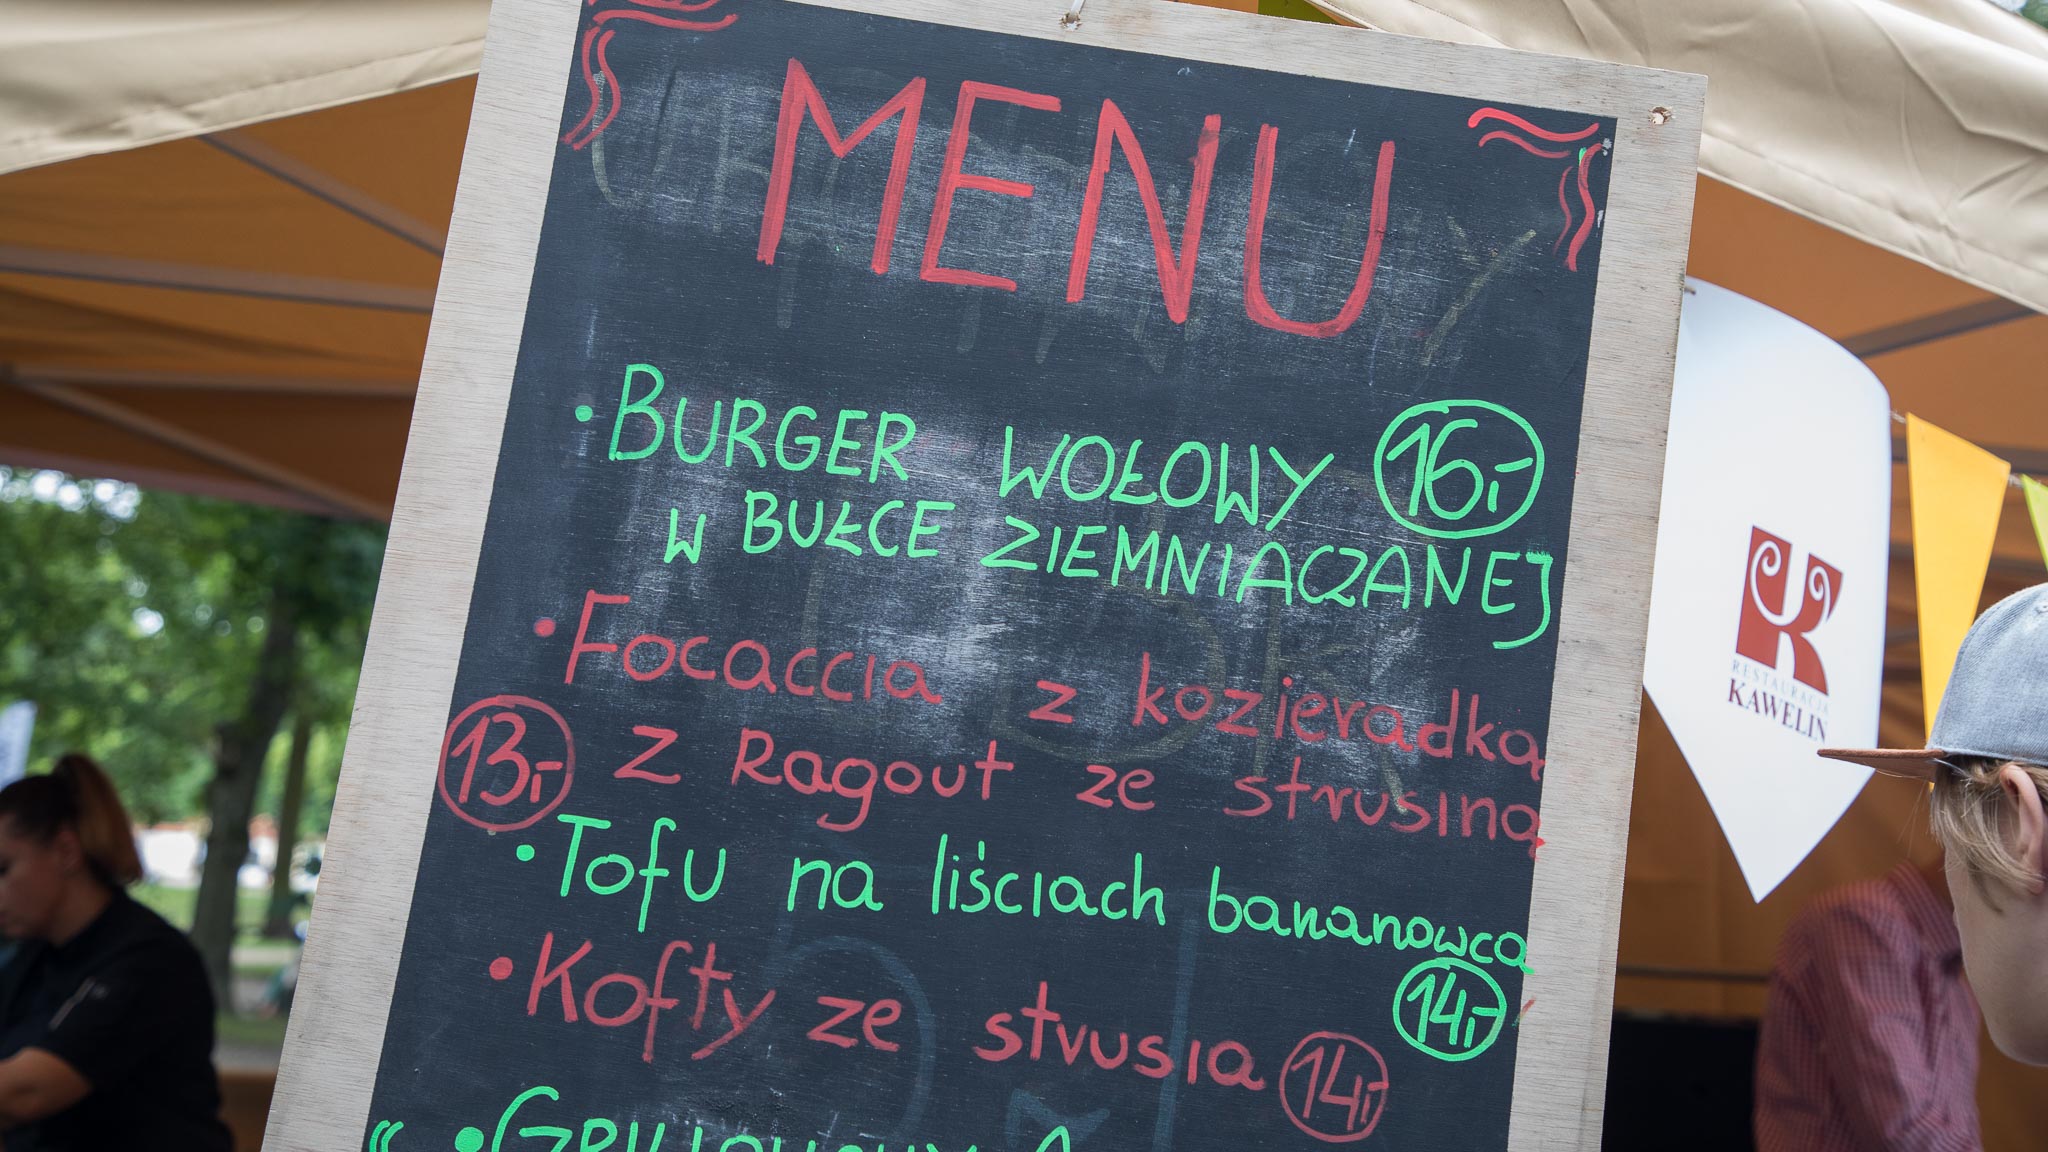 MENU
• BURGER WOŁOWY 16,-
W BUŁCE ZIEMNIACZANEJ
• Focaccia z kozieradką
13,- z Ragout ze strusiną
• Tofu na liściach bananowca
14,-
• Kofty ze strusia 14,-
RESTAURACJA
KAWELIN